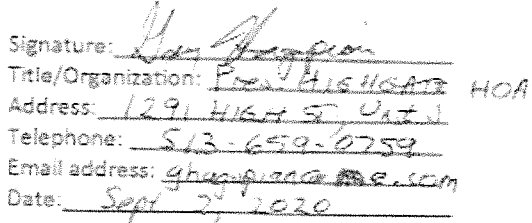 Signature:
Title/Organization: Pres HIGHGATE HOA
Address: 1291 HIGH ST, Unit J
Telephone: 513-659-0759
Email address:
Date: Sept 2, 2020